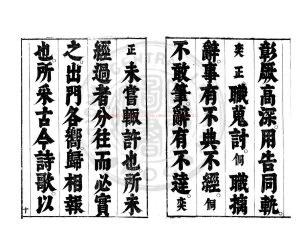 彰厥高深用告同軌
奕正職蒐討侗職摛
辭事有不典不經侗
不敢筆辭有不達奕
正未嘗輙許也所未
經過者分往而必實
之出門各嚮歸相報
也所采古今詩歌以
十